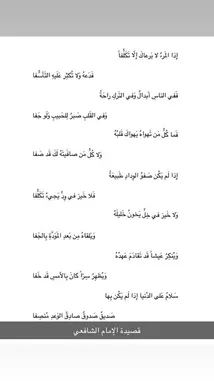 إِذَا المَرءُ لا يَرعاكَ إِلّا تَكَلُّفاً
فَدَعهُ وَلا تُكثِر عَلَيهِ التَأَسُّفا
فَفي الناسِ أَبدالٌ وَفي التَركِ راحَةٌ
وَفي القَلبِ صَبرٌ لِلحَبيبِ وَلَو جَفا
فَما كُلُّ مَن تَهواهُ يَهواكَ قَلبُهُ
وَلا كُلُّ مَن صافَيتَهُ لَكَ قَد صَفا
إِذا لَم يَكُن صَفوُ الوِدادِ طَبيعَةً
فَلا خَيرَ في وِدٍّ يَجيءُ تَكَلُّفا
وَلا خَيرَ في خِلٍّ يَخونُ خَليلَهُ
وَيَلقاهُ مِن بَعدِ المَوَدَّةِ بِالجَفا
وَيُنكِرُ عَيشاً قَد تَقادَمَ عَهدُهُ
وَيُظهِرُ سِرّاً كانَ بِالأَمسِ قَد خَفا
سَلامٌ عَلى الدُنيا إِذا لَم يَكُن بِها
صَديقٌ صَدوقٌ صادِقُ الوَعدِ مُنصِفا
قصيدة الإمام الشافعي